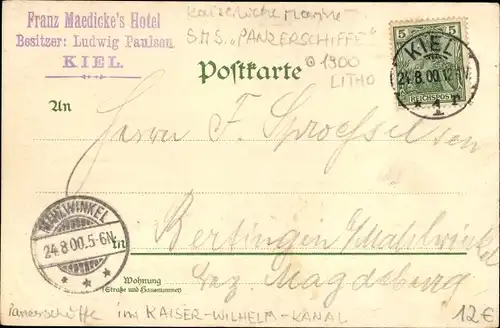 Franz Maedicke's Hotel
Besitzer: Ludwig Paulsen
KIEL
Kaiserliche Marine
S.M.S. „PANZERSCHIFFE"
1900
LITHO
5 5
REICHSPOST
KIEL
24.8.00.12-1N.
1
Postkarte
An
Herrn F. Sproehselsen
MAHLWINKEL
24.8.00.5-6N.
in Bertingen / Mahlwinkel
Bez. Magdeburg
Wohnung
(Straße und Hausnummer)
Panzerschiffe im KAISER-WILHELM-KANAL
12€